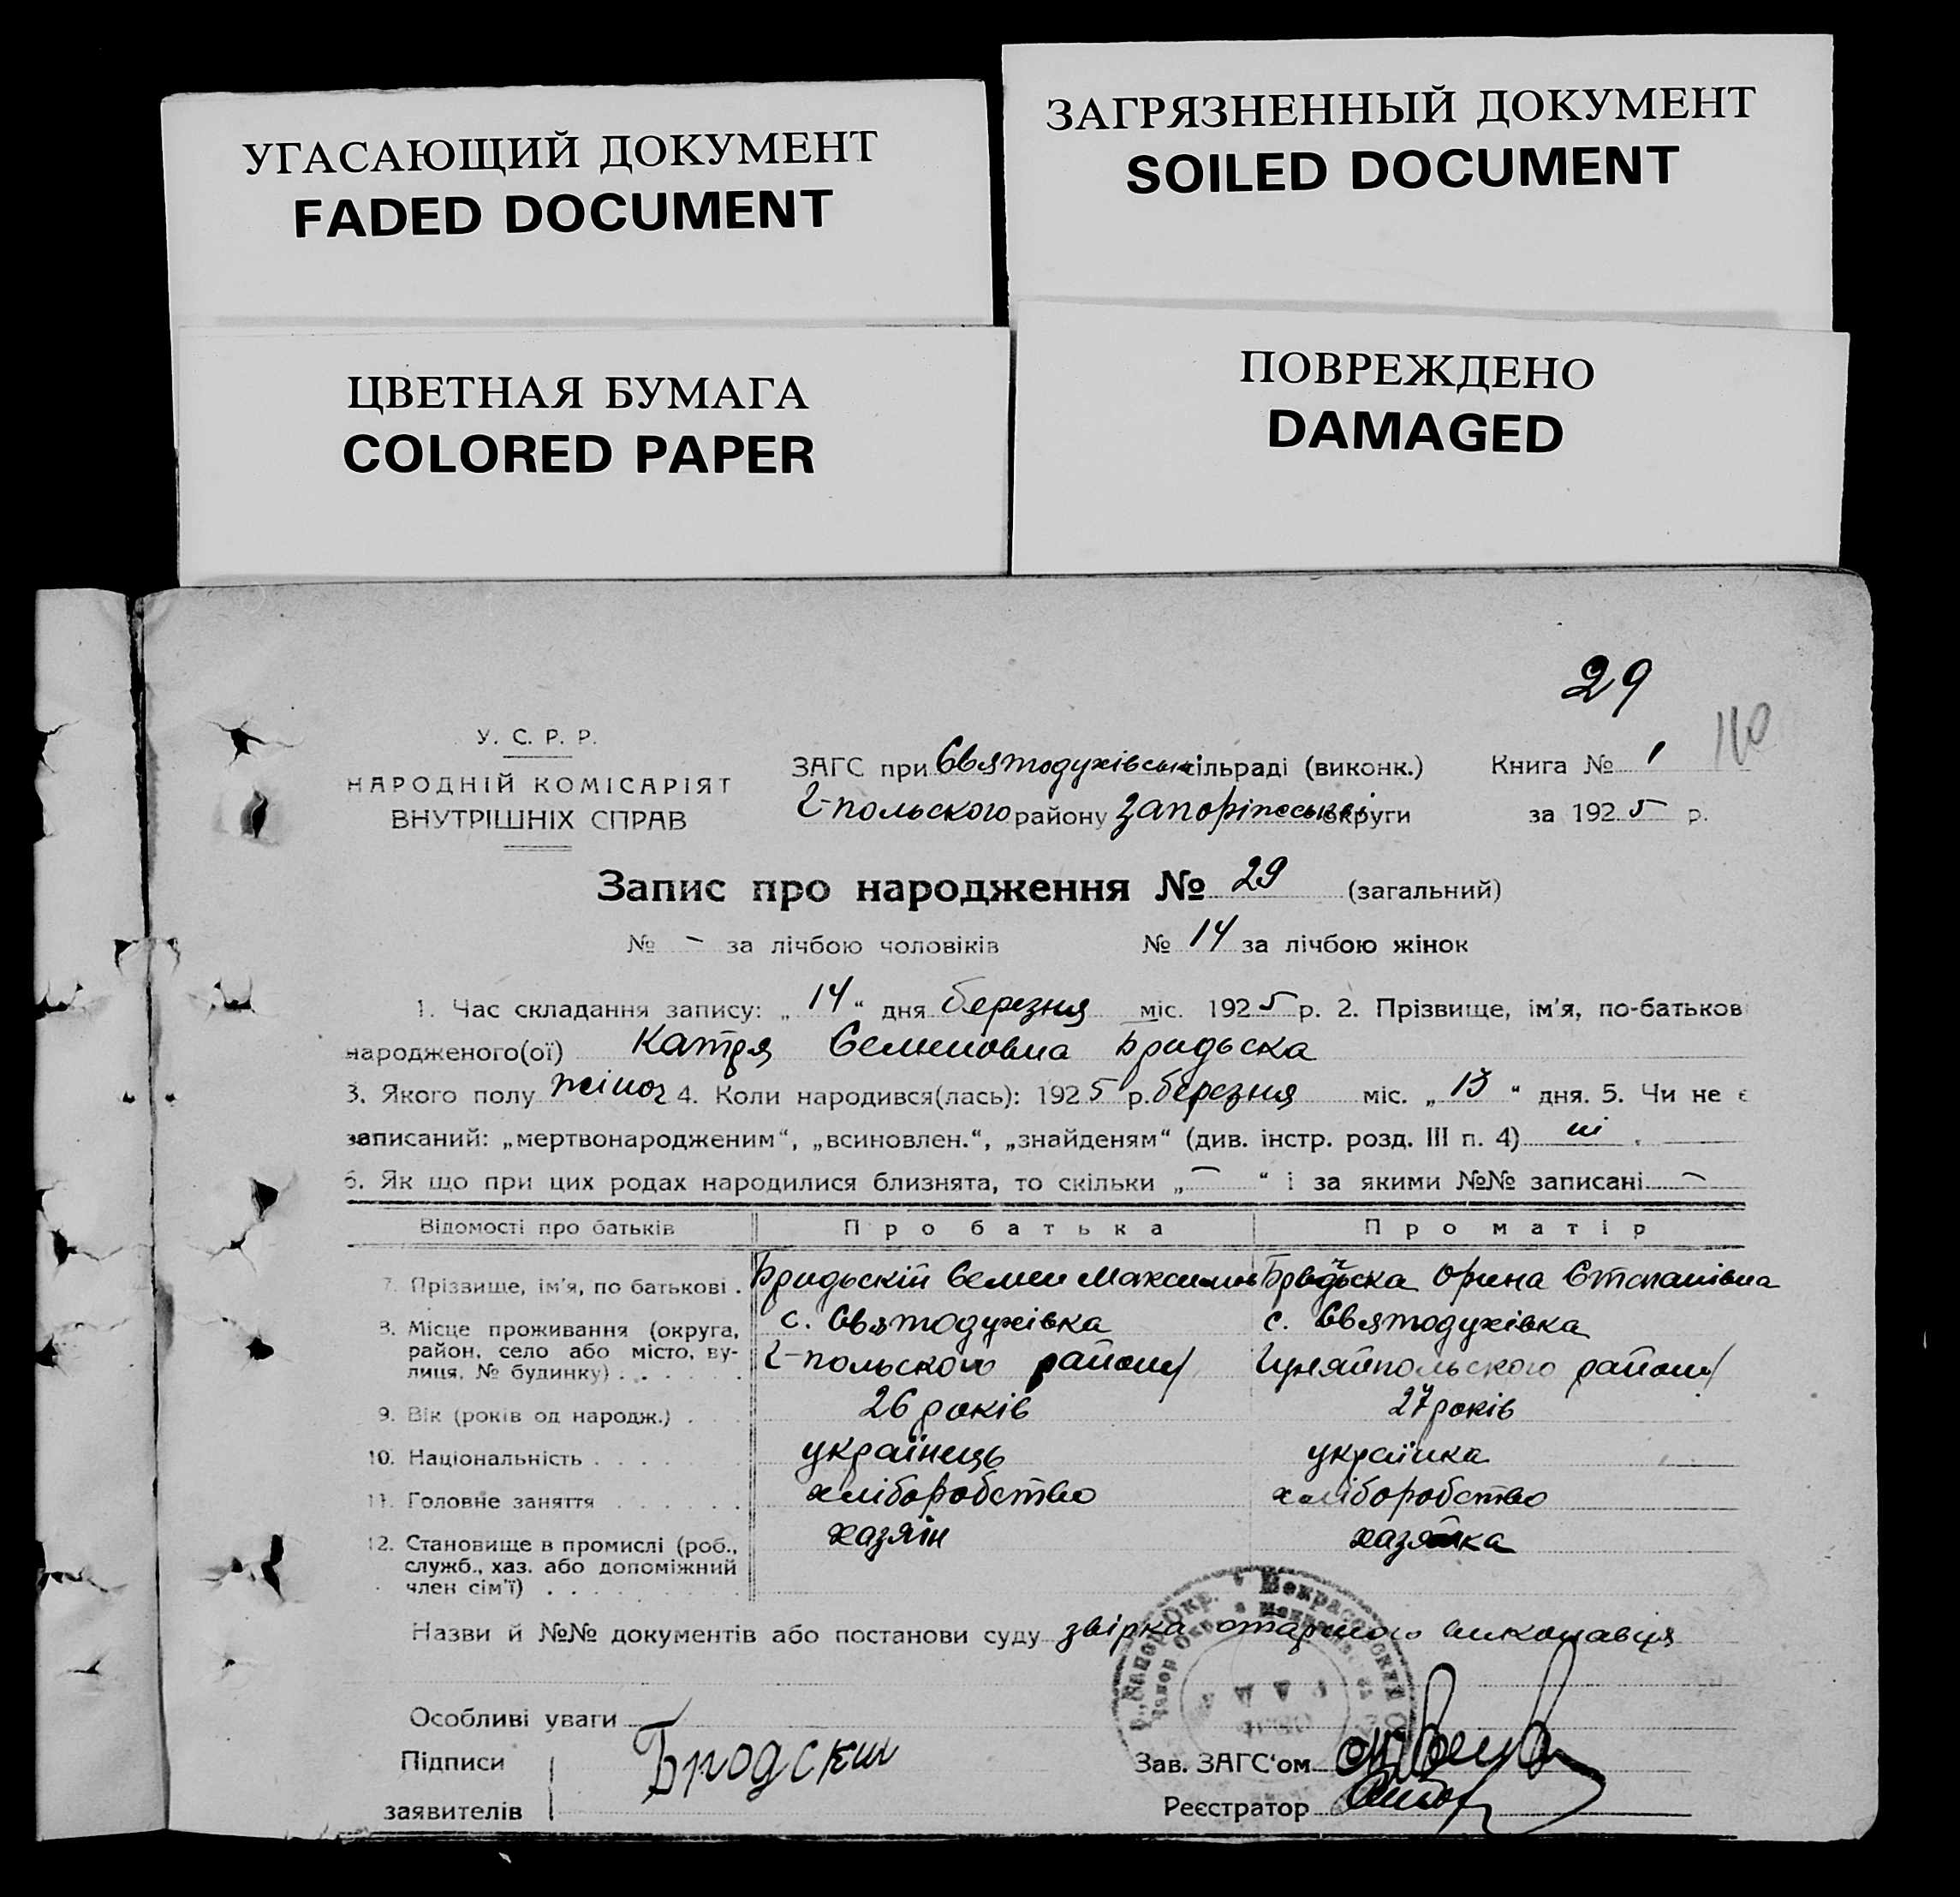 УГАСАЮЩИЙ ДОКУМЕНТ
FADED DOCUMENT
ЗАГРЯЗНЕННЫЙ ДОКУМЕНТ
SOILED DOCUMENT
ЦВЕТНАЯ БУМАГА
COLORED PAPER
ПОВРЕЖДЕНО
DAMAGED
29
110
У. С. Р. Р.
НАРОДНІЙ КОМІСАРІЯТ
ВНУТРІШНІХ СПРАВ
ЗАГС при Святодухівськ сільраді (виконк.)
Г-польского району Запоріжської округи
Книга № 1
за 1925 р.
Запис про народження № 29 (загальний)
№ - за лічбою чоловіків № 14 за лічбою жінок
1. Час складання запису: „14“ дня березня міс. 1925 р. 2. Прізвище, ім'я, по-батьков
народженого(ої) Катря Семеновна Бридьска
3. Якого полу жіноч 4. Коли народився(лась): 1925 р. березня міс. „13“ дня. 5. Чи не є
записаний: „мертвонародженим“, „всиновлен.“, „знайденям“ (див. інстр. розд. III п. 4) ні.
6. Як що при цих родах народилися близнята, то скільки „-“ і за якими №№ записані -
Відомості про батьків Про батька Про матір
7. Прізвище, ім'я, по батькові . Бридьскій Семен Максимов Бридьска Орина Степанівна
8. Місце проживання (округа, район, село або місто, вулиця, № будинку) . . с. Святодухівка с. Святодухівка
Г-польского району Гуляйпольского району
9. Вік (років од народж.) . 26 років 27 років
10. Національність . . . . українець українка
11. Головне заняття . . . . хліборобство хліборобство
12. Становище в промислі (роб., служб., хаз. або допоміжний член сім'ї) . . . . хазяїн хазяйка
Назви й №№ документів або постанови суду звірка старшого виконавця
Особливі уваги
Підписи
заявителів
Бродский
Зав. ЗАГС'ом
Реєстратор